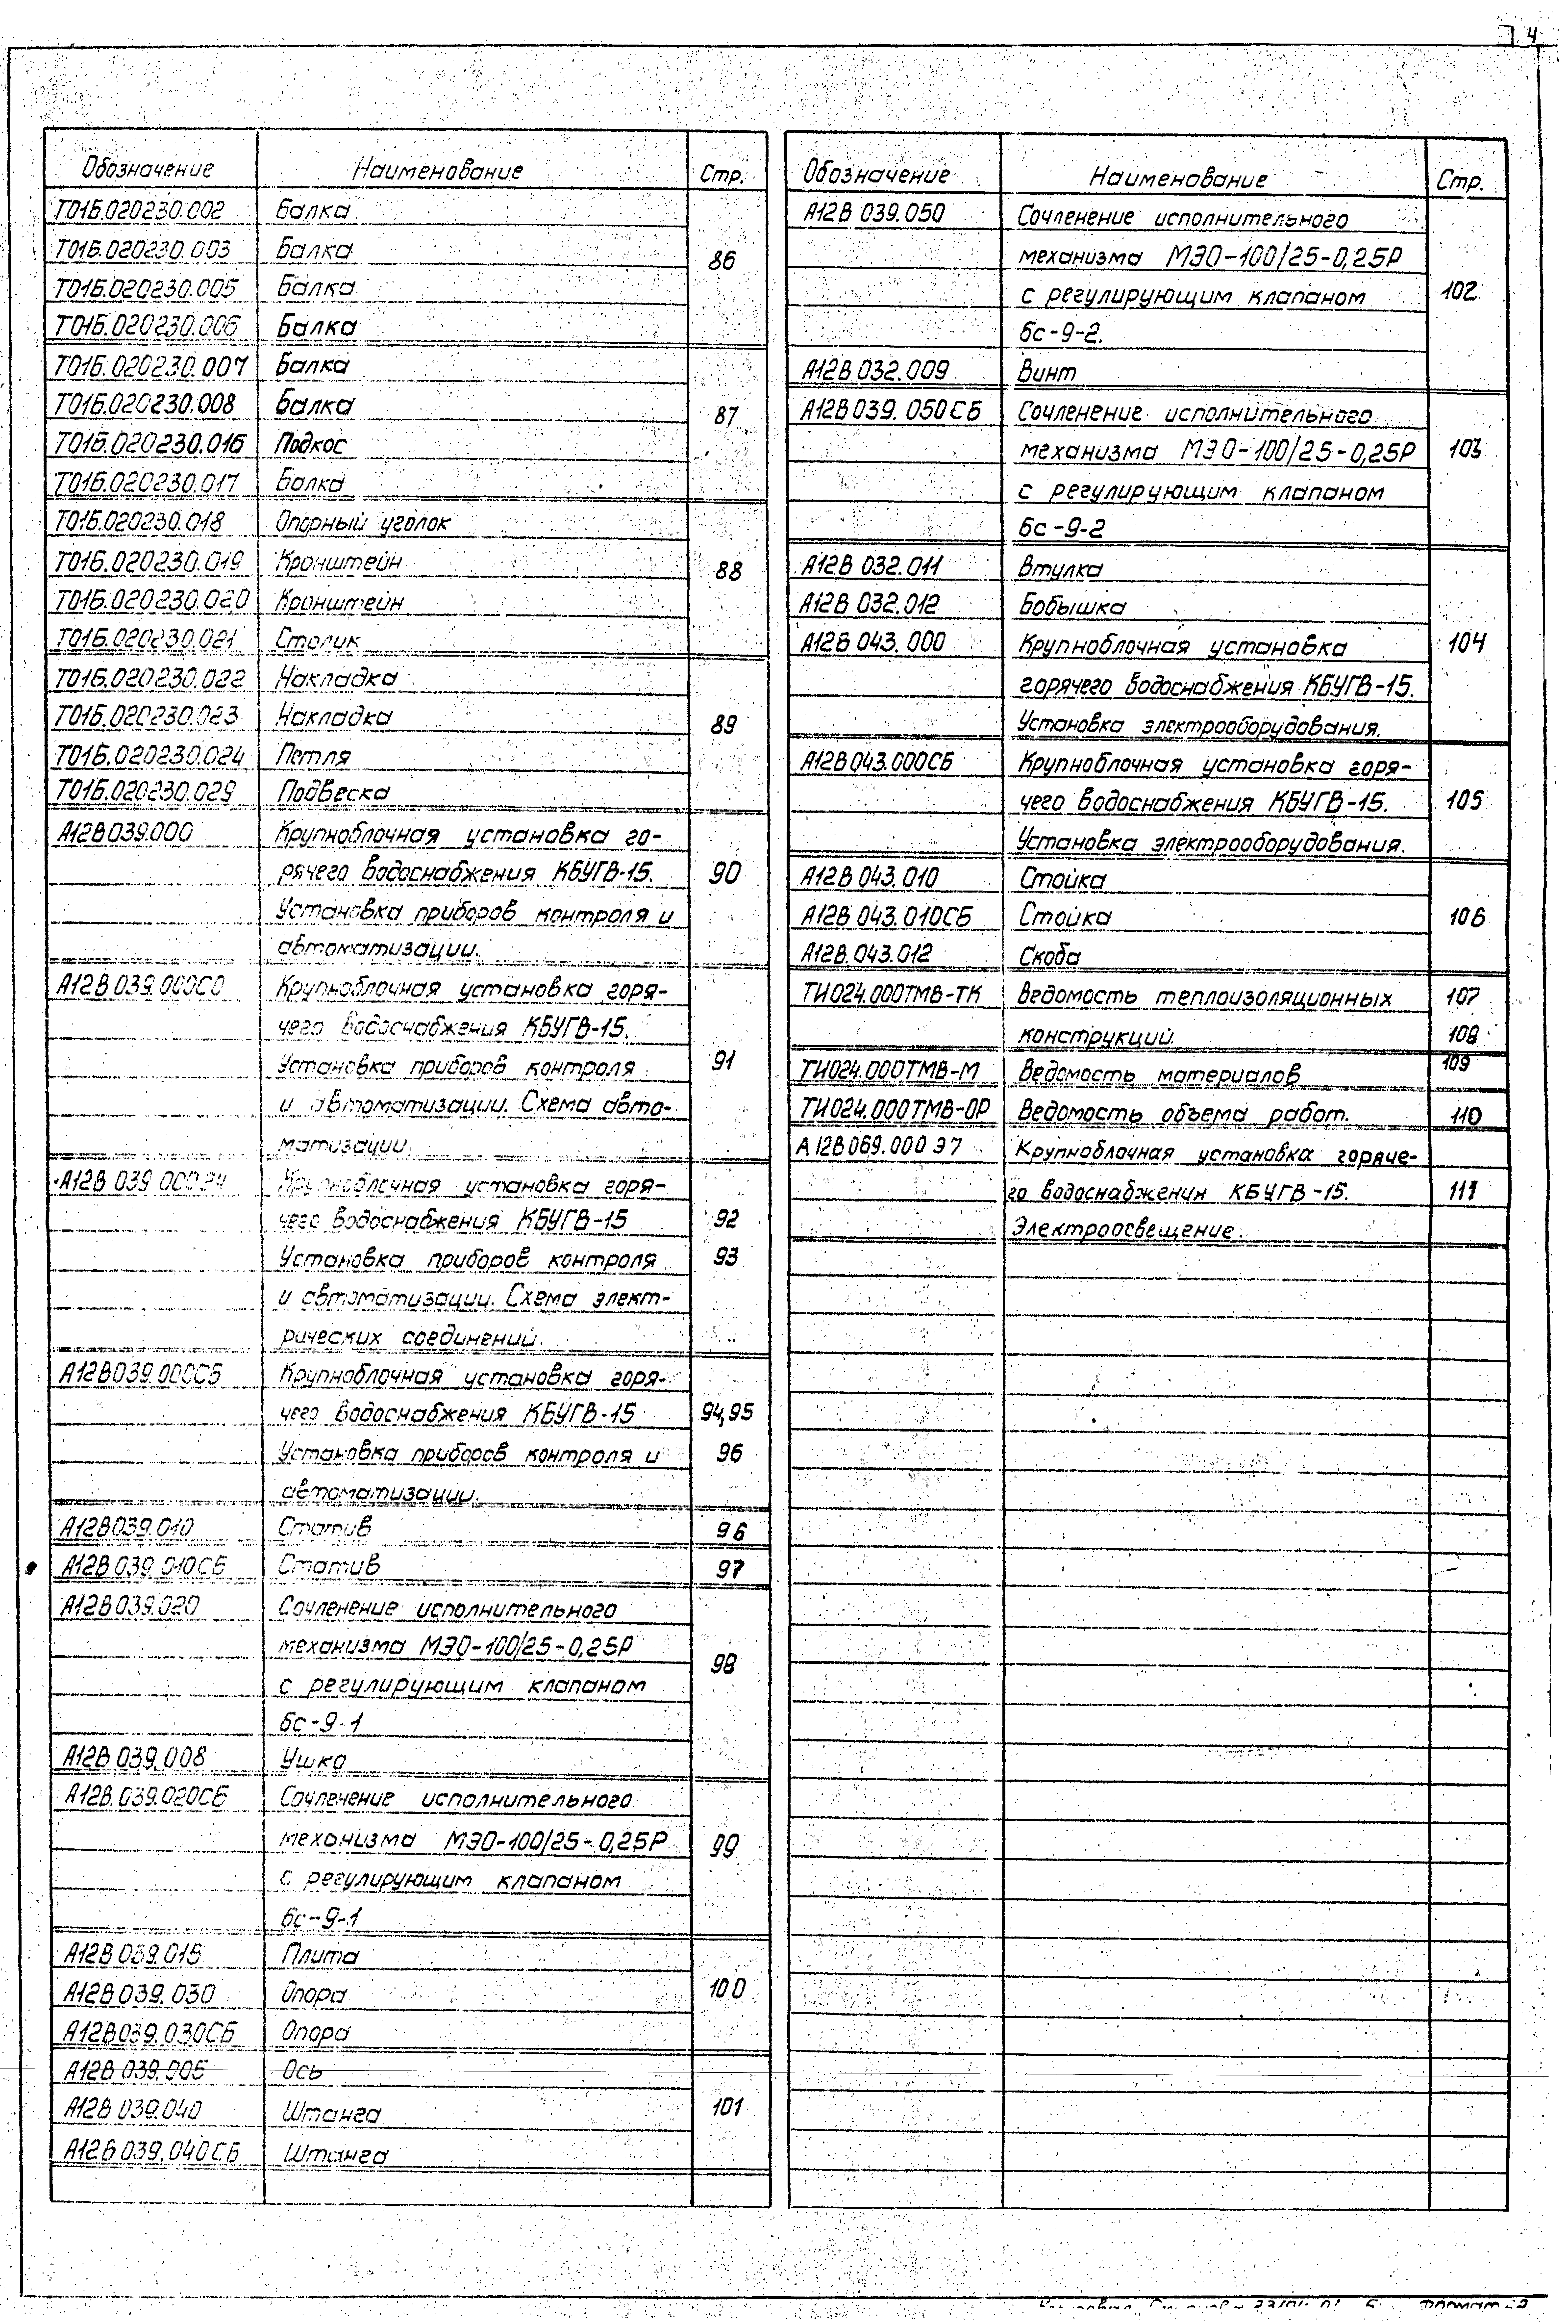 4
Обозначение Наименование Стр.
Т01Б.020230.002 Балка
Т01Б.020230.003 Балка 86
Т01Б.020230.005 Балка
Т01Б.020230.006 Балка
Т01Б.020230.007 Балка
Т01Б.020230.008 Балка 87
Т01Б.020230.016 Подкос
Т01Б.020230.017 Балка
Т01Б.020230.018 Опорный уголок
Т01Б.020230.019 Кронштейн 88
Т01Б.020230.020 Кронштейн
Т01Б.020230.021 Столик
Т01Б.020230.022 Накладка
Т01Б.020230.023 Накладка 89
Т01Б.020230.024 Петля
Т01Б.020230.029 Подвеска
А12В039.000 Крупноблочная установка го-
рячего водоснабжения КБУГВ-15. 90
Установка приборов контроля и
автоматизации.
А12В039.000С0 Крупноблочная установка горя-
чего водоснабжения КБУГВ-15.
Установка приборов контроля 91
и автоматизации. Схема авто-
матизации.
А12В 039.000Э4 Крупноблочная установка горя-
чего водоснабжения КБУГВ-15 92
Установка приборов контроля 93
и автоматизации. Схема элект-
рических соединений.
А12В039.000СБ Крупноблочная установка горя-
чего водоснабжения КБУГВ-15 94,95
Установка приборов контроля и 96
автоматизации.
А12В039.010 Статив 96
А12В039.010СБ Статив 97
А12В039.020 Сочленение исполнительного
механизма МЭО-100/25-0,25Р 98
с регулирующим клапаном
6с-9-1
А12В 039.008 Ушко
А12В.039.020СБ Сочленение исполнительного
механизма МЭО-100/25-0,25Р 99
с регулирующим клапаном
6с-9-1
А12В039.015 Плита
А12В039.030 Опора 100
А12В039.030СБ Опора
А12В 039.005 Ось
А12В 039.040 Штанга 101
А12В 039.040СБ Штанга
Обозначение Наименование Стр.
А12В 039.050 Сочленение исполнительного
механизма МЭО-100/25-0,25Р
с регулирующим клапаном 102
6с-9-2.
А12В 032.009 Винт
А12В039.050СБ Сочленение исполнительного
механизма МЭО-100/25-0,25Р 103
с регулирующим клапаном
6с-9-2
А12В 032.011 Втулка
А12В 032.012 Бобышка
А12В 043.000 Крупноблочная установка 104
горячего водоснабжения КБУГВ-15.
Установка электрооборудования.
А12В043.000СБ Крупноблочная установка горя-
чего водоснабжения КБУГВ-15. 105
Установка электрооборудования.
А12В 043.010 Стойка
А12В 043.010СБ Стойка 106
А12В.043.012 Скоба
ТИ024.000ТМВ-ТК Ведомость теплоизоляционных 107
конструкций. 108
ТИ024.000ТМВ-М Ведомость материалов 109
ТИ024.000ТМВ-ОР Ведомость объема работ. 110
А12В069.000 Э7 Крупноблочная установка горяче-
го водоснабжения КБУГВ-15. 111
Электроосвещение.